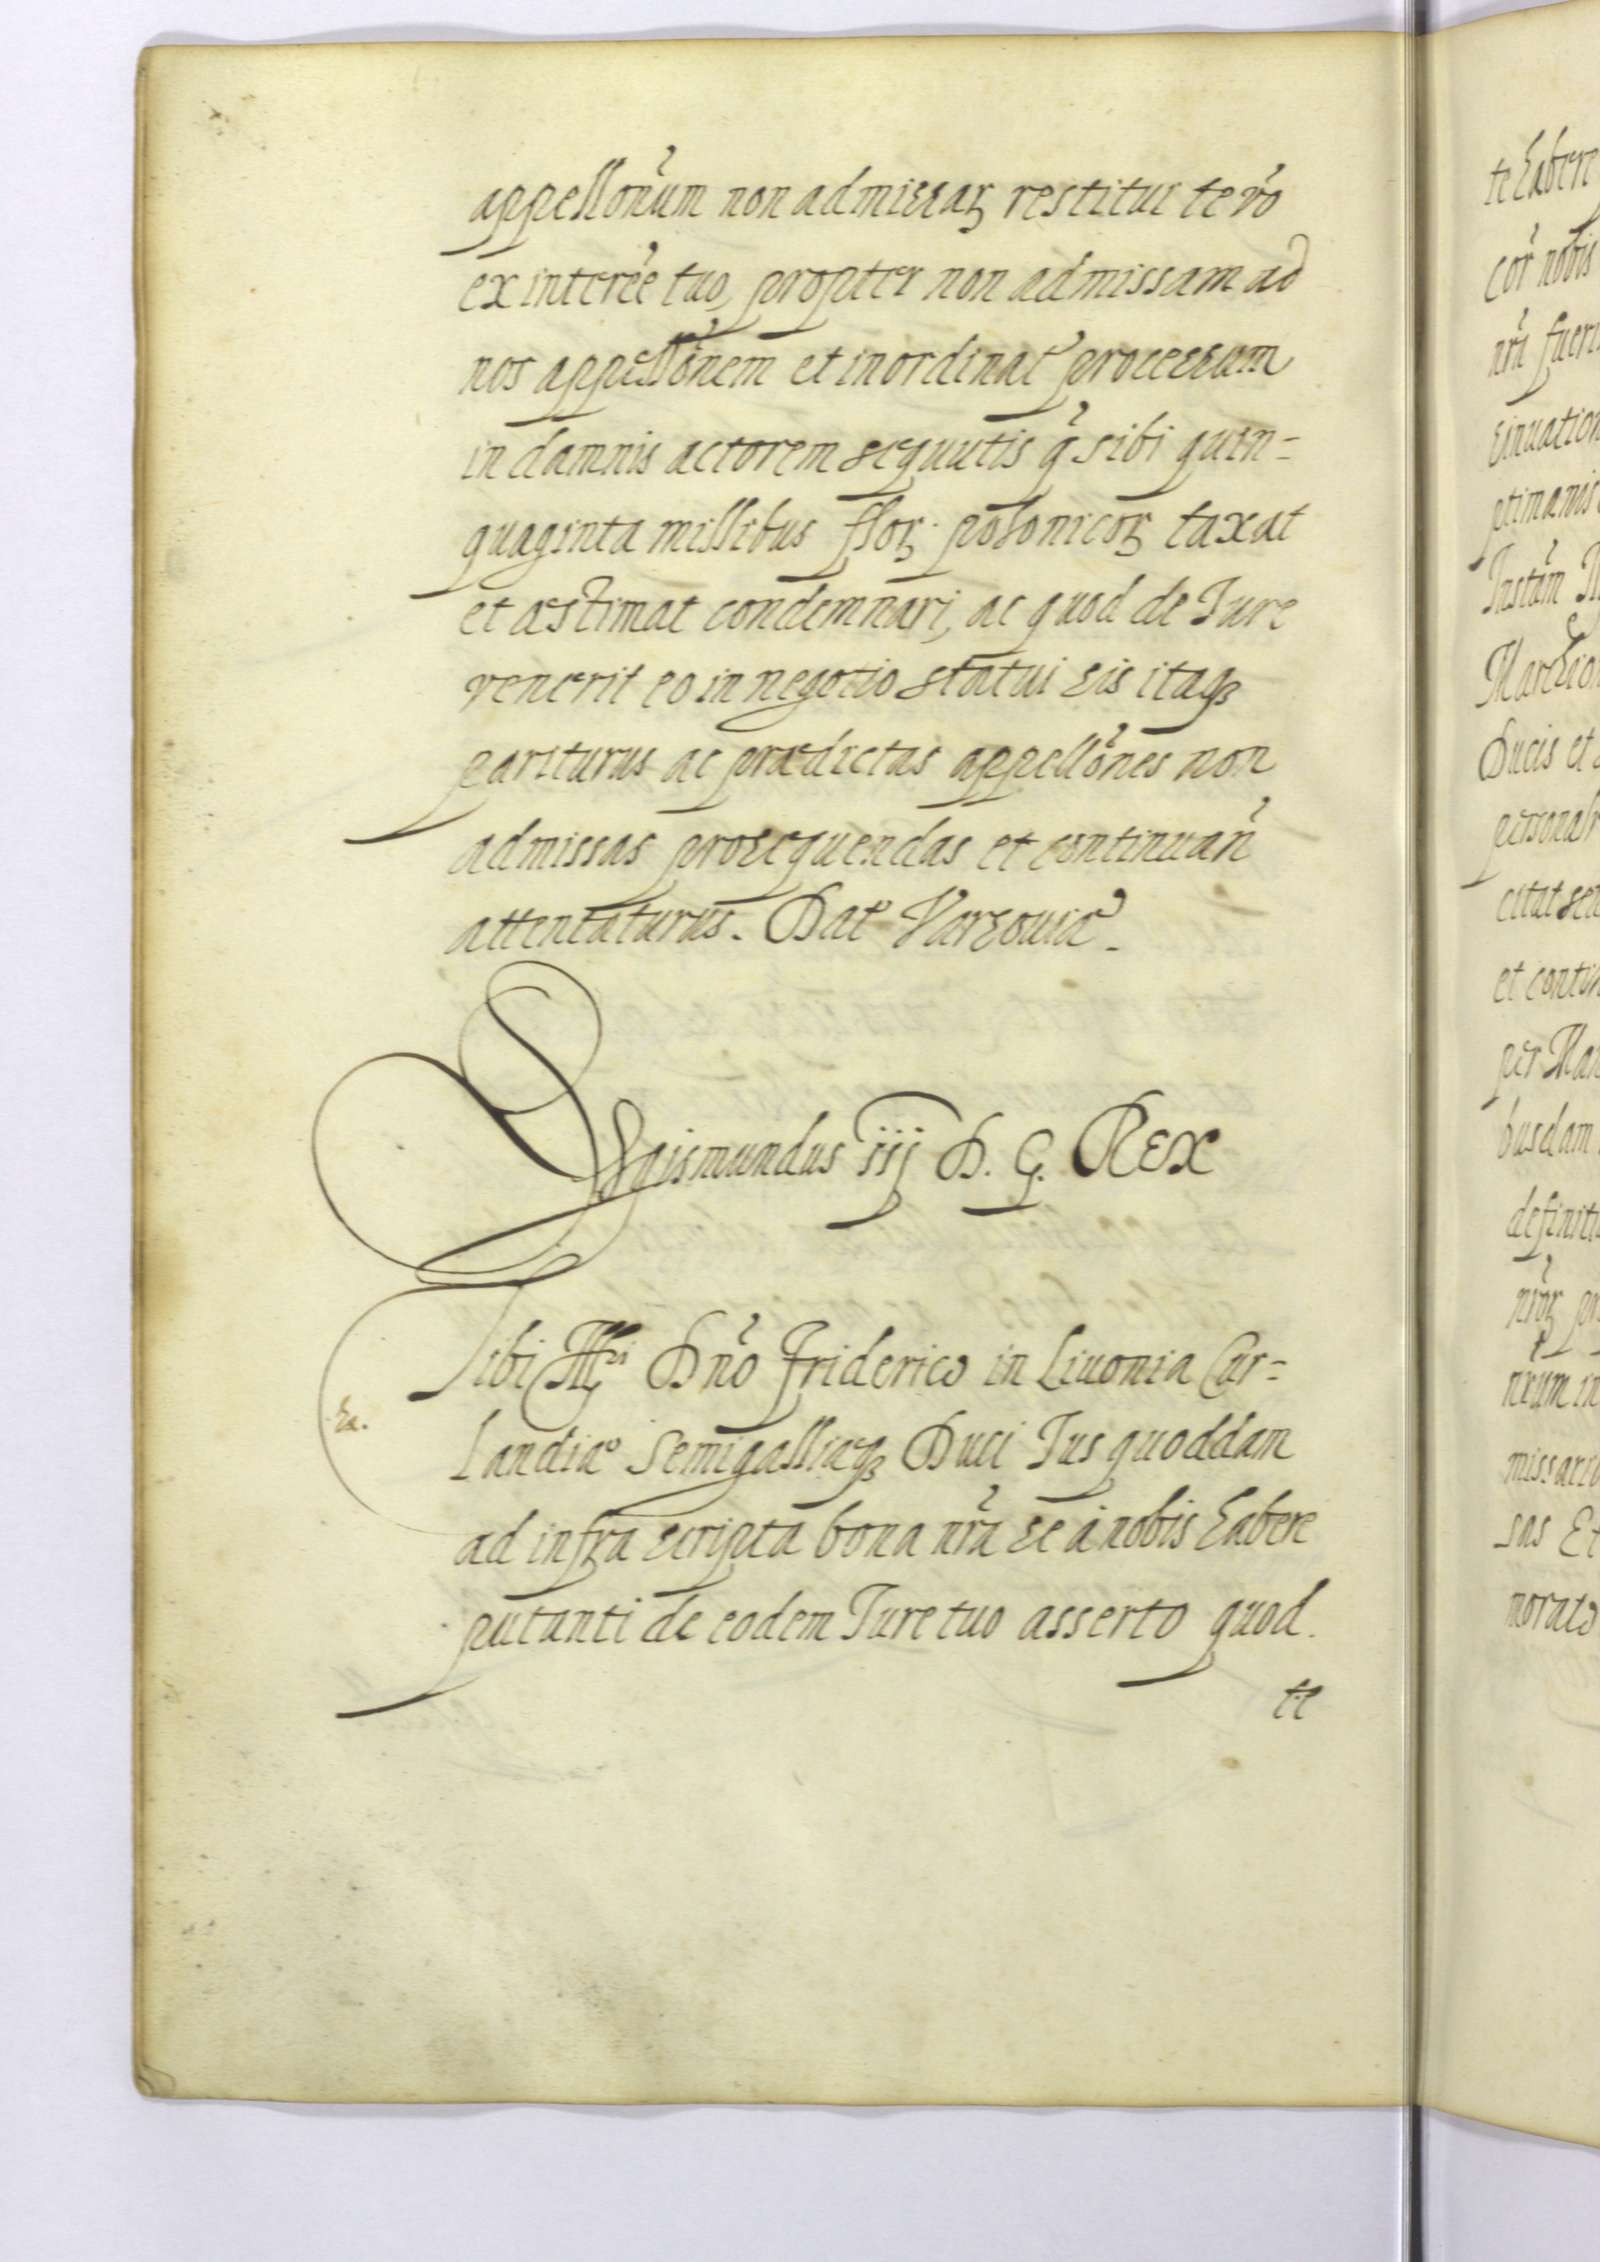 appellon̄um non admissaꝝ restitui te v̄o
ex interēe tuo, propter non admissam ad
nos appellōnem et inordinatę processum
in damnis actorem sequutis q̄ sibi quin-
quaginta millibus floꝝ. polonicoꝝ taxat
et æstimat condemnari, ac quod de Iure
venerit eo in negotio statui sis itaqꝫ
pariturus ac prædictas appellōnes non
admissas prosequendas et continuan̄
attentaturus. Datę Varsouiæ.
Sigismundus iij D. G. Rex
Tibi Ill͏ʳⁱ Dn̄o Friderico in Liuonia Cur-
landiæ Semigalliæqꝫ Duci Ius quoddam
ad infra scripta bona nr̄a se à nobis habere
putanti de eodem Iure tuo asserto quod
te
te habere
cor̄ nobis
nr̄i
ptimanis
Instām
Ducis et
citat
et contin
per Man
busdam
definiti
nr̄oꝝ
nrum in
sas Et
morato